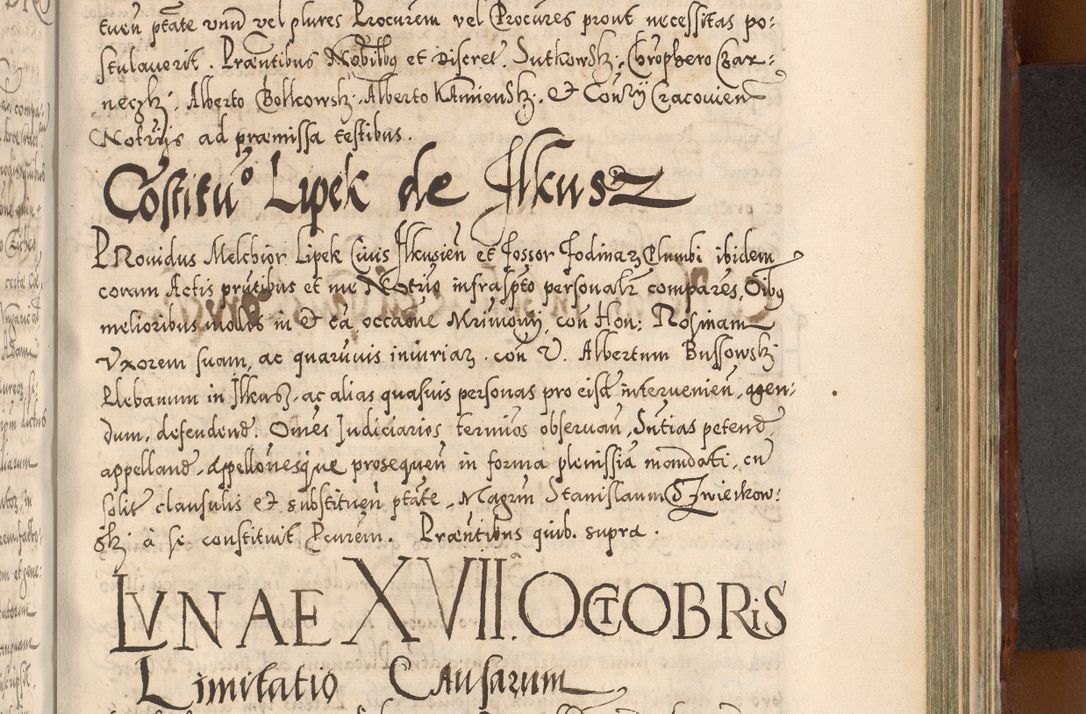 tuen ptate vnu vel plures Procurem vel Procures prout necessitas po:
stulauerit. Praentibus Nobilibq et Discret. Sutkowsk. Chrophero Czar:
neczk. Alberto Bolkowsk. Alberto Kamiensk. Et Conrÿ Cracouien
Notrÿs ad praemissa testibus.
Costitu° Lipek de Jlkusz
PRouidus Melchior Lipek Ciuis Jlkusien et fossor fodinaz Plumbi ibidem
coram Actis prntibus et me Notrio infrascpto personalr compares, Oibq
melioribus modis in Et ca, occaone Mrimonÿ, con Hon: Rosinam
Vxorem suam, ac quaruuis iniuriaz. con V. Albertum Bussowsk
Plebanum in Jlkusz. ac alias quasuis personas pro eisd interuenien, agen:
dum, defendend. Omes Judiciarios terminos obseruan, Sntias petend,
appelland, Appellonesque prosequen in forma plenissia mandati, cu
solit clausulis et substituen ptate, Magrm Stanislaum Zwierkow:
sk à se constituit Pcurem. Praentibus quib. supra.
LVNAE XVII.a OCTOBRIS
Limitatio Causarum